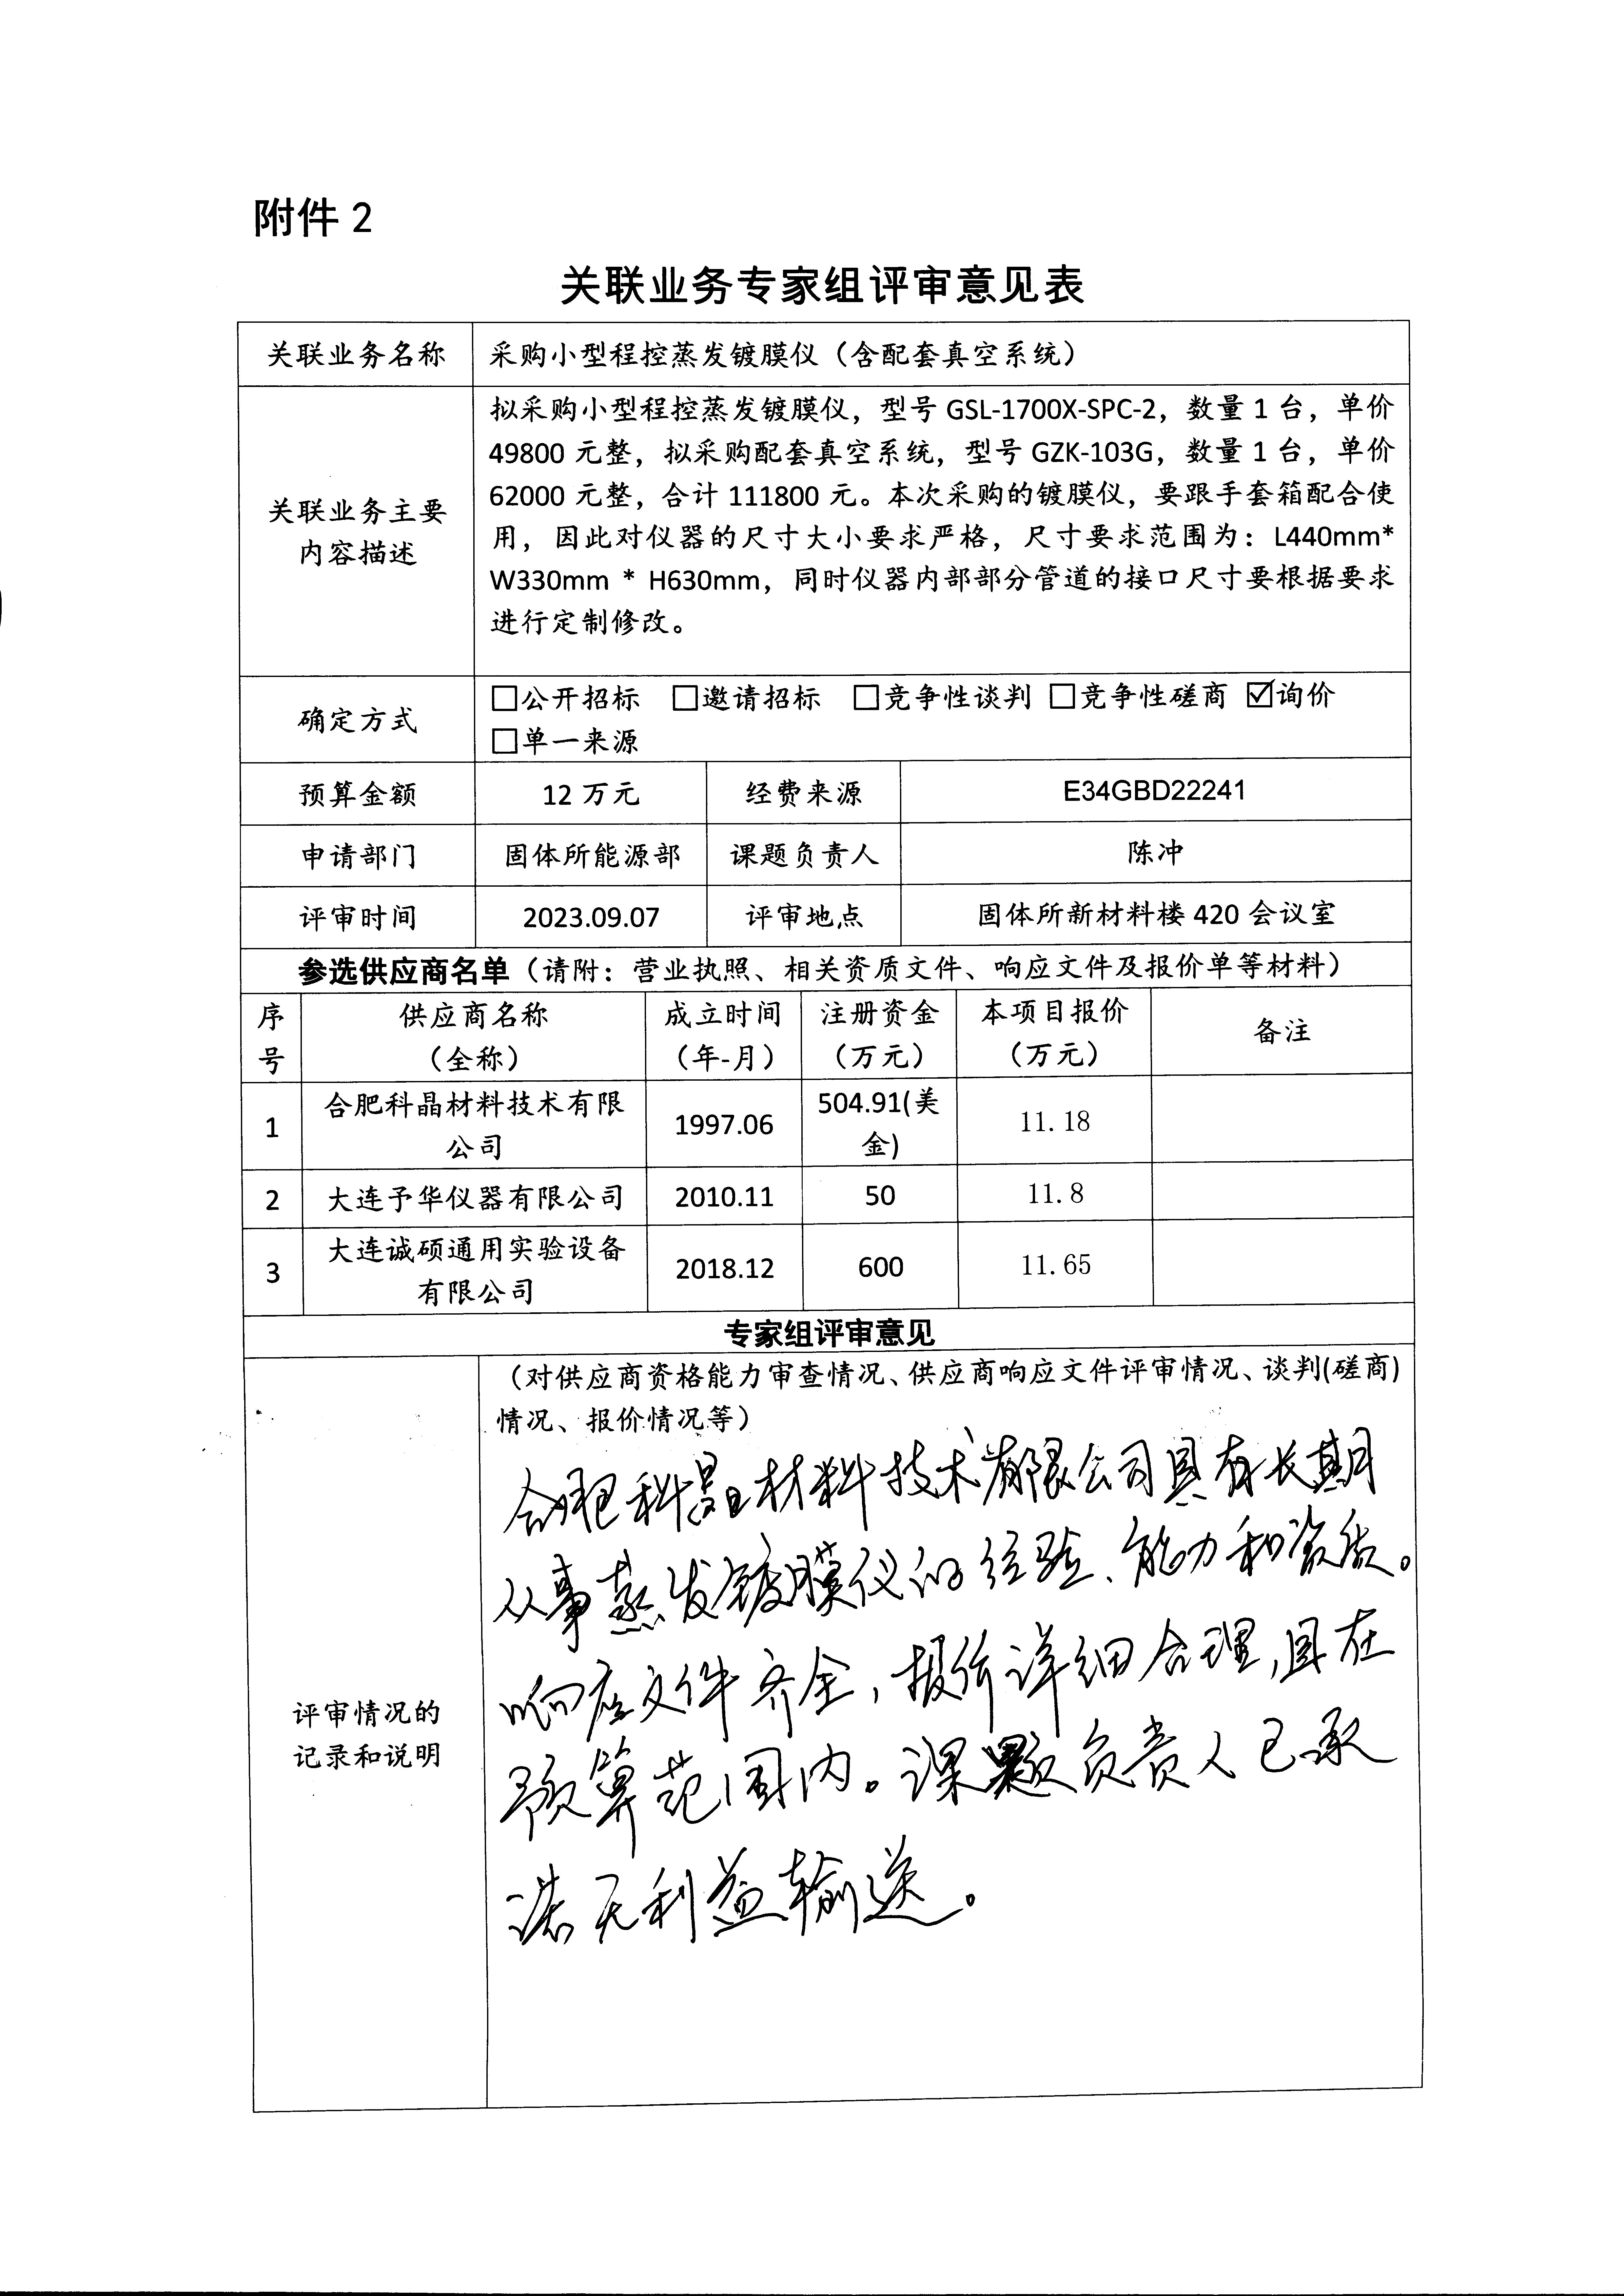 附件 2
关联业务专家组评审意见表
关联业务名称 采购小型程控蒸发镀膜仪（含配套真空系统）
关联业务主要
内容描述
拟采购小型程控蒸发镀膜仪，型号 GSL-1700X-SPC-2，数量 1 台，单价
49800 元整，拟采购配套真空系统，型号 GZK-103G，数量 1 台，单价
62000 元整，合计 111800 元。本次采购的镀膜仪，要跟手套箱配合使
用，因此对仪器的尺寸大小要求严格，尺寸要求范围为：L440mm*
W330mm * H630mm，同时仪器内部部分管道的接口尺寸要根据要求
进行定制修改。
确定方式
☐公开招标 ☐邀请招标 ☐竞争性谈判 ☐竞争性磋商 ☑询价
☐单一来源
预算金额 12 万元 经费来源 E34GBD22241
申请部门 固体所能源部 课题负责人 陈冲
评审时间 2023.09.07 评审地点 固体所新材料楼 420 会议室
参选供应商名单（请附：营业执照、相关资质文件、响应文件及报价单等材料）
序 供应商名称 成立时间 注册资金 本项目报价 备注
号 （全称） （年-月） （万元） （万元）
1 合肥科晶材料技术有限 1997.06 504.91(美 11.18
公司 金)
2 大连予华仪器有限公司 2010.11 50 11.8
3 大连诚硕通用实验设备 2018.12 600 11.65
有限公司
专家组评审意见
评审情况的
记录和说明
（对供应商资格能力审查情况、供应商响应文件评审情况、谈判(磋商)
情况、报价情况等）
合肥科晶材料技术有限公司具有长期
从事蒸发镀膜仪的经验、能力和资质。
响应文件齐全，报价详细合理，且在
预算范围内。课题负责人已承
诺无利益输送。